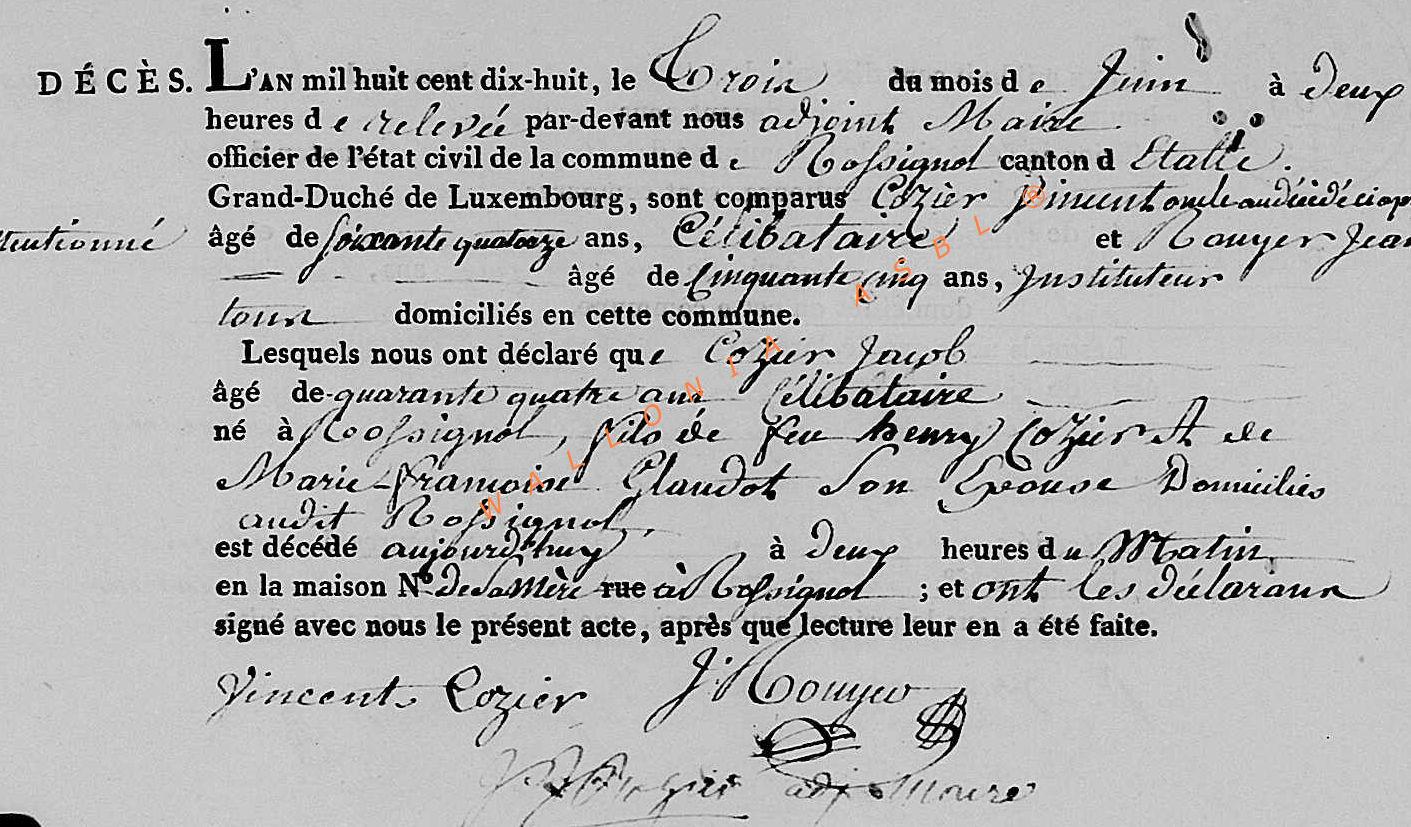 DÉCÈS. L'AN mil huit cent dix-huit, le Trois du mois de Juin à deux
heures de relevée par-devant nous adjoint Maire
officier de l'état civil de la commune de Rossignol canton d Etalle.
Grand-Duché de Luxembourg, sont comparus Cozièr Vincent oncle au décédé ci ap
âgé de soixante quatorze ans, Célibataire et Rouyer Jean
âgé de Cinquante cinq ans, Instituteur
tous domiciliés en cette commune.
Lesquels nous ont déclaré que Cozier Jacob
âgé de quarante quatre ans Célibataire
né à Rossignol, fils de feu henry Cozier et de
Marie-françoise Claudot Son Epouse Domicilies
audit Rossignol
est décédé aujourdhuy à deux heures du Matin
en la maison N° De Sa Mère rue à Rossignol ; et ont les déclarans
signé avec nous le présent acte, après que lecture leur en a été faite.
Vincent Cozier J. Rouyer
adj Maire
WALLONIA ASBL ®